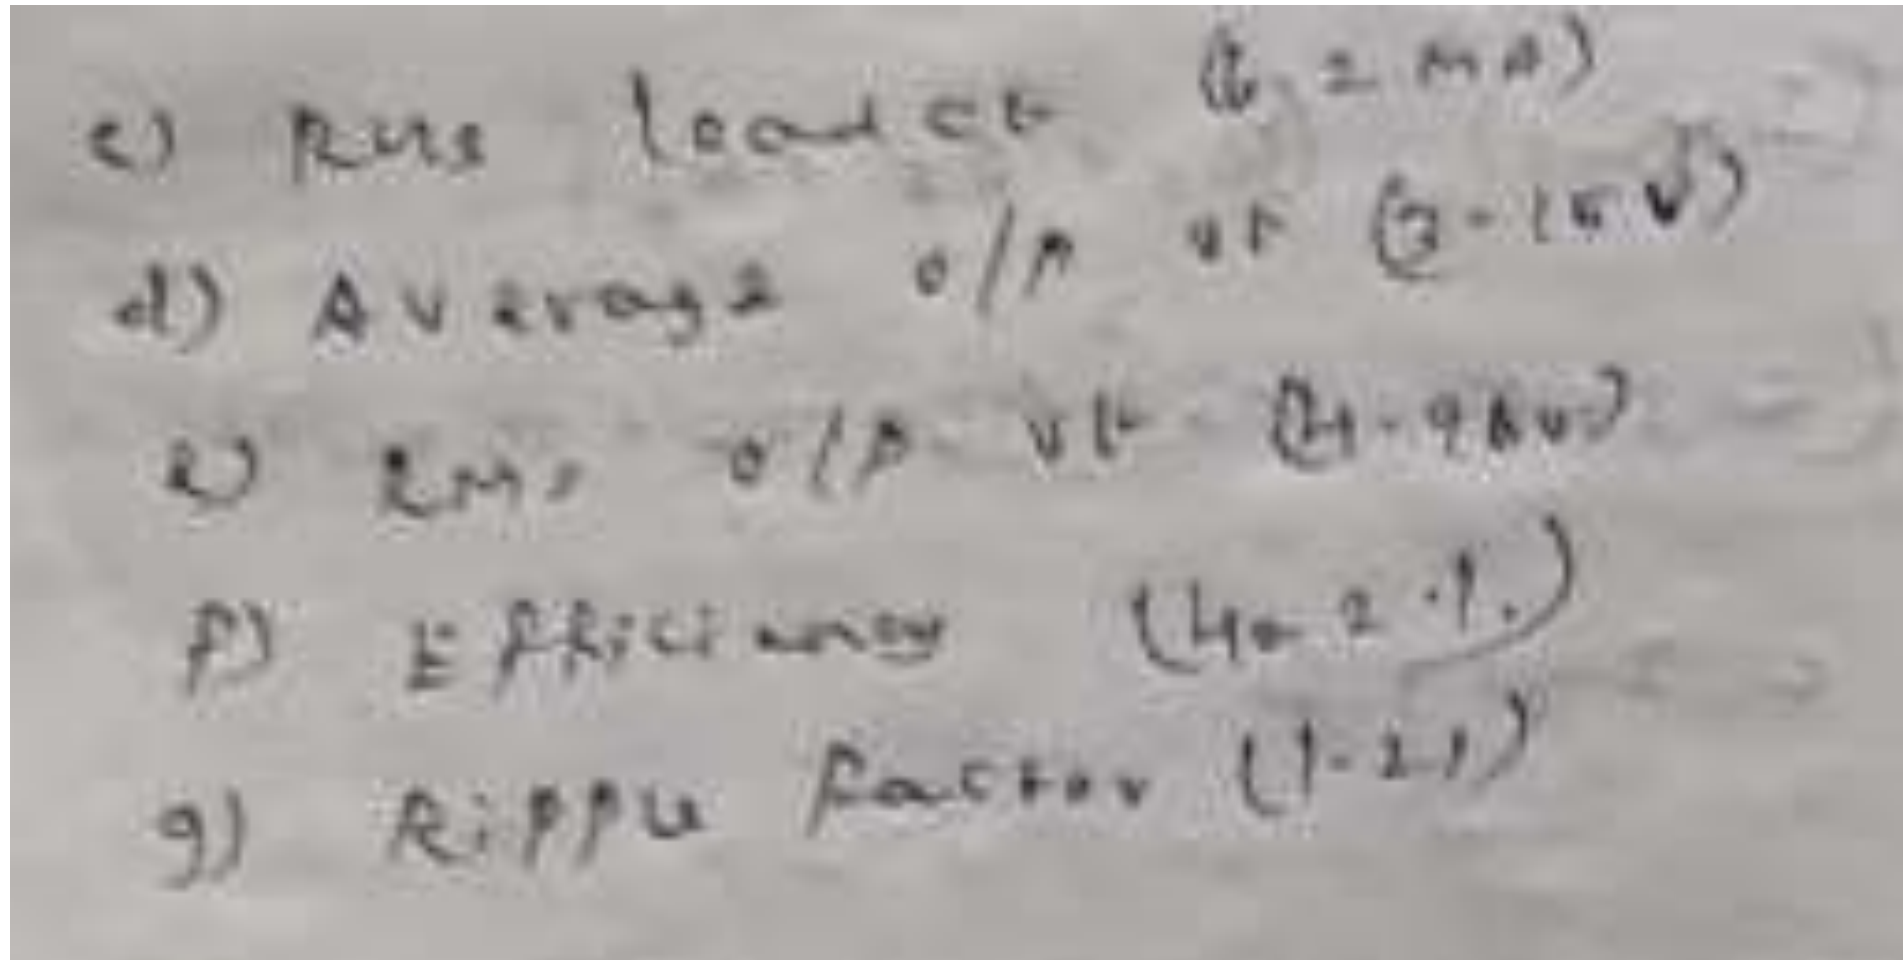 c) RMS load ct (6.2 mA)
d) Average o/p vt (3-15V)
e) RMS o/p vt (4.96v)
f) Efficiency (40.2 %)
g) Ripple factor (1.21)